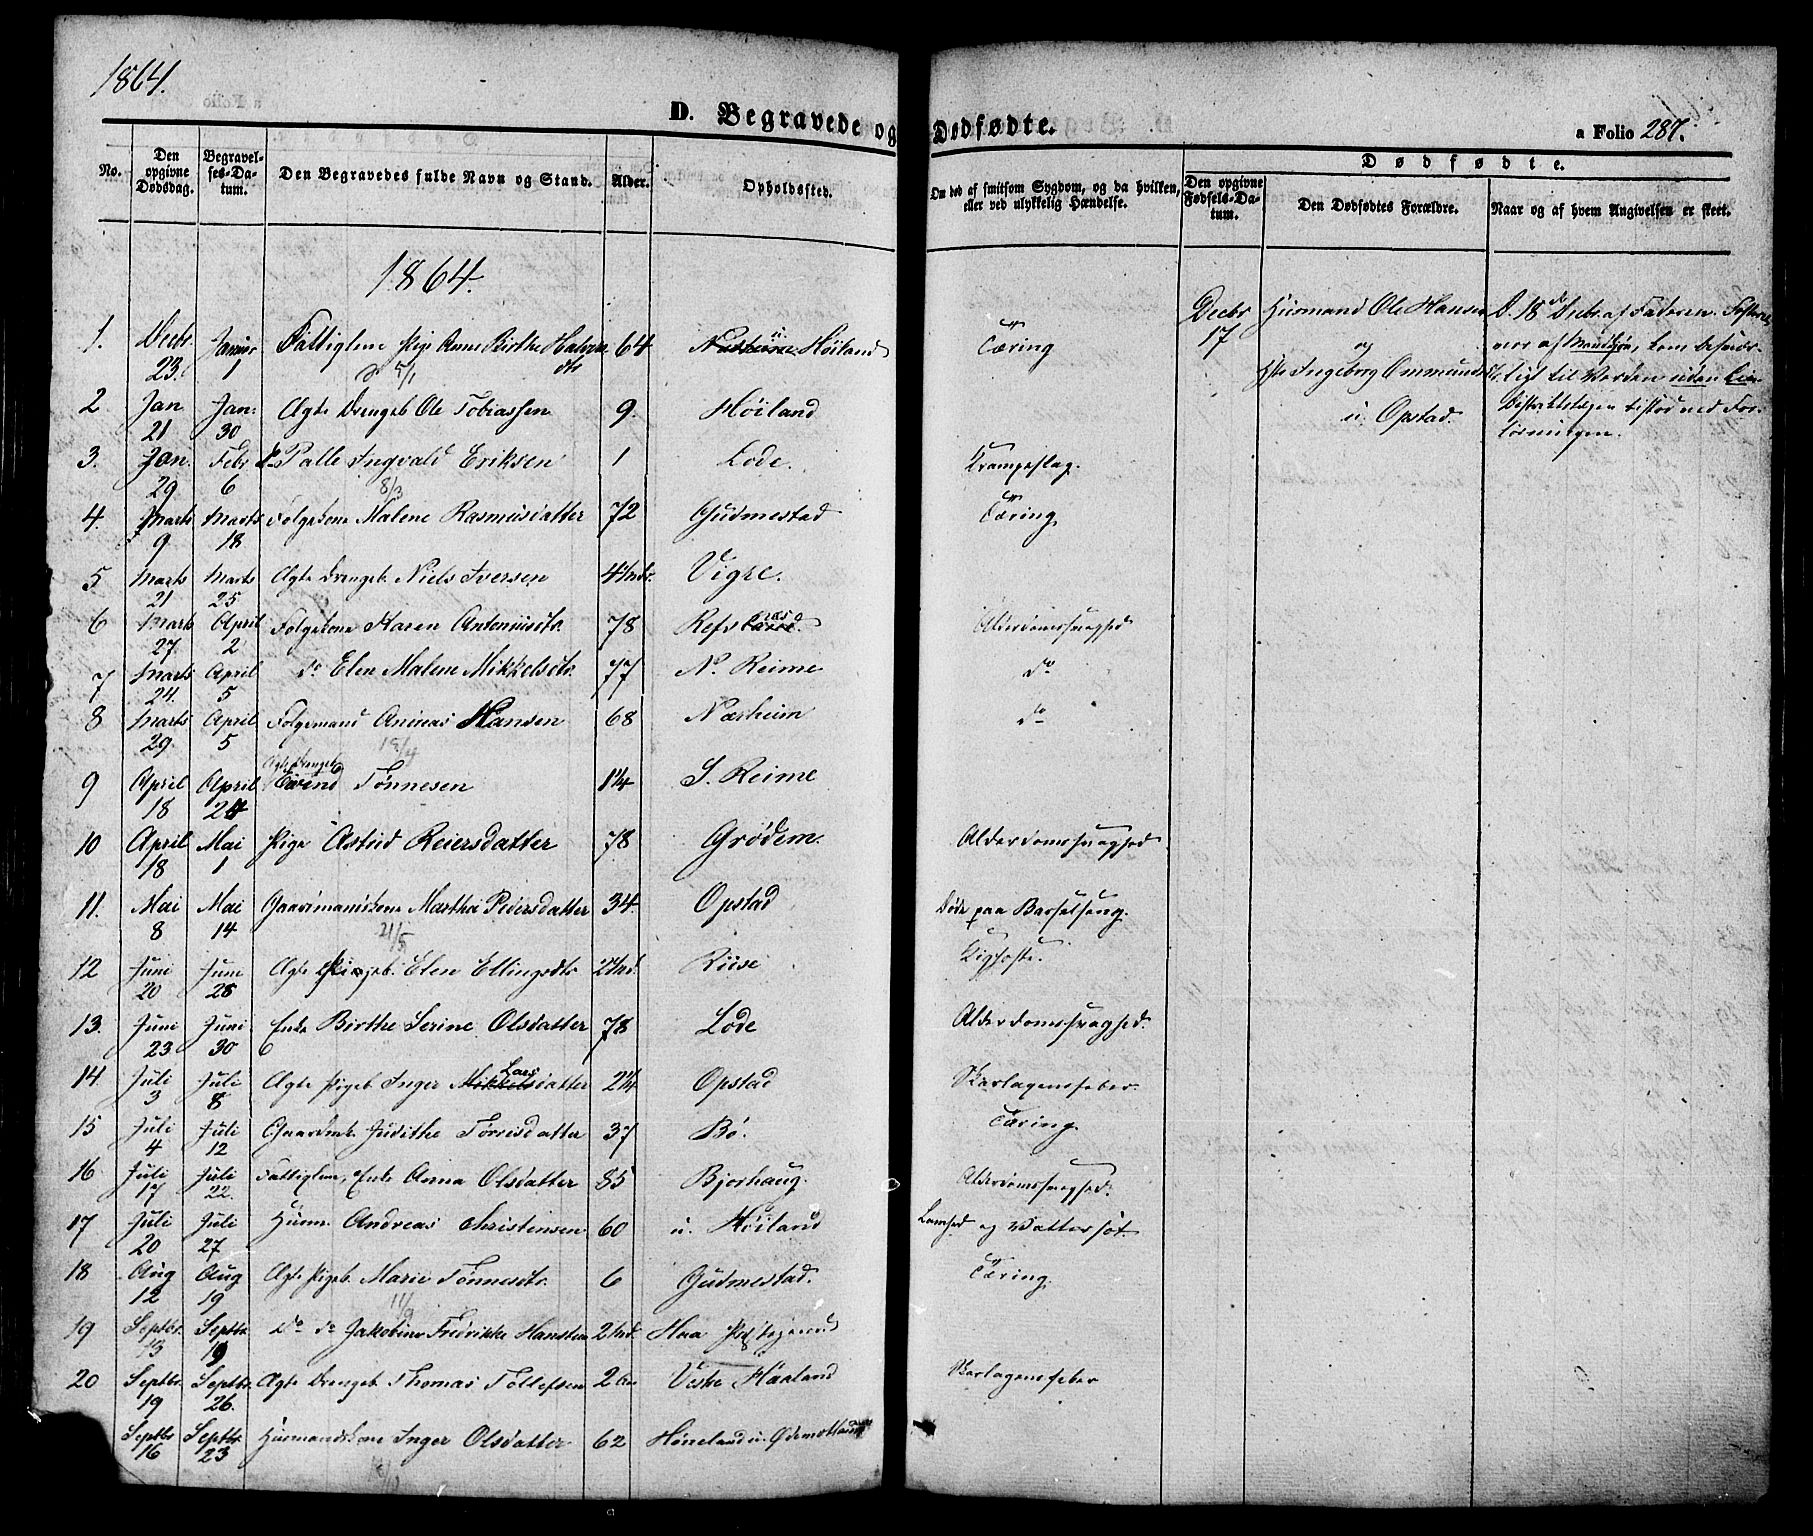 1864.
D. Begravede og Dødfødte.
a Folio 287.
No.
Den opgivne Dødsdag.
Begravelses-Datum.
Den Begravedes fulde Navn og Stand.
Alder.
Opholdssted.
Om død af smitsom Sygdom, og da hvilken, eller ved ulykkelig Hændelse.
Dødfødte.
Den opgivne Fødsels-Datum.
Den Dødfødtes Forældre.
Naar og af hvem Angivelsen er skeet.
1864.
1. Decbr 23. Januar 1 Fattiglem Pige Anne Birthe Halvordtr 64 u Høiland Tæring
5/1
Decbr 17 Husmand Ole Hansen og Ingeborg Ommundsd u. Opstad.
D. 18de Decbr. af Faderen.
af Mandkjøn, kom
til Verden uden Liv
Distriktslægen tilstod ved
2 Jan 21 Jan: 30 Ægte Drengeb Ole Tobiassen 9. Høiland
3. Jan. 29 Febr 6 do Palle Ingvald Eriksen 1 Lode. Krampeslag.
8/3
4. Marts 9 Marts 18 Følgekone Malene Rasmusdatter 72 Gudmestad Tæring
5 Marts 21 Marts 25 Ægte Drengeb Niels Iversen 4 Mdr. Vigre.
6 Marts 27 April 2 Følgekone Karen Antonisdtr. 78 Refsnæs. Alderdomssvaghed
7 Marts 24. April 5 do Elen Malene Mikkelsdtr. 77 N. Reime do
8 Marts 29. April 5 Følgemand Aninas Hansen 68 Nærheim do
19/4
9 April 18 April 24 Ægte Drengeb Eivind Tønnesen 1 1/4 S. Reime
10 April 18 Mai 1 Pige Astrid Reiersdatter 78 Grødem. Alderdomssvaghed
11. Mai 8 Mai 14 Gaardmandskone Martha Pedersdatter 34. Opstad Døde paa Barselseng.
21/5
12 Juni 20 Juni 28 Ægte Pigeb. Elen Ellingsdtr 2 Md. Riise Kighoste.
13. Juni 23 Juni 30 Enke Birthe Serine Olsdatter 78 Lode Alderdomssvaghed.
14 Juli 3 Juli 8 Ægte Pigeb Inger Mikkels Larsdatter 2 1/4 Opstad Skarlagensfeber.
15 Juli 4 Juli 12 Gaardmk. Judithe Tørrisdatter 37 Bø. Tæring.
16 Juli 17 Juli 22. Fattiglem, Enke Anna Olsdatter 85 Bjorhaug. Alderdomssvaghed.
17 Juli 20 Juli 27 Husm. Andreas Christensen 60 u. Høiland Lamhed og Vattersot.
18 Aug 12 Aug 19 Ægte Pigeb. Marie Tønnesdtr. 6 Gudmestad. Tæring.
11/9
19 Septbr. 13 Septbr 19 Do do Jakobine Fredrikke Hansten 2 Md. Haa Præstegaard
20 Septbr. 19 Septbr. 26. Ægte Drengeb Thomas Tollefsen 2 Aar Vestre Haaland Skarlagensfeber
Septbr 16 Septbr. 23 Husmandskone Inger Olsdatter 62 Høneland u. Ødemotland